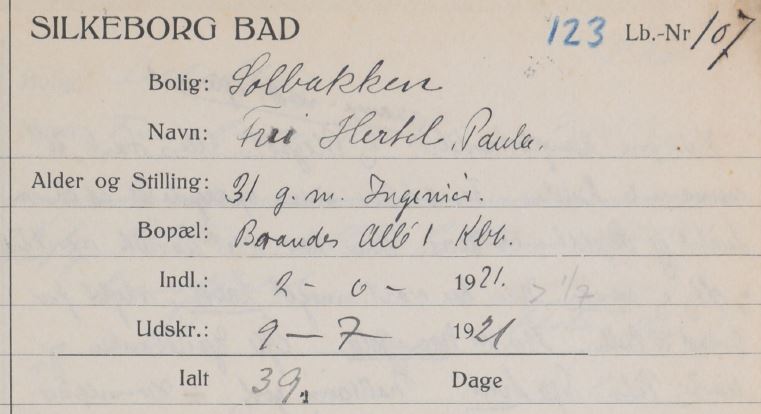 SILKEBORG BAD 123 Lb.-Nr 107
Bolig: Solbakken
Navn: Hertel, Paula.
Alder og Stilling: 31 g. m. Ingeniør.
Bopæl: Brandes Allé 1 Kbh.
Indl.: 2 - 6 - 1921. 1/7
Udskr.: 9 - 7 1921
Ialt 39. Dage